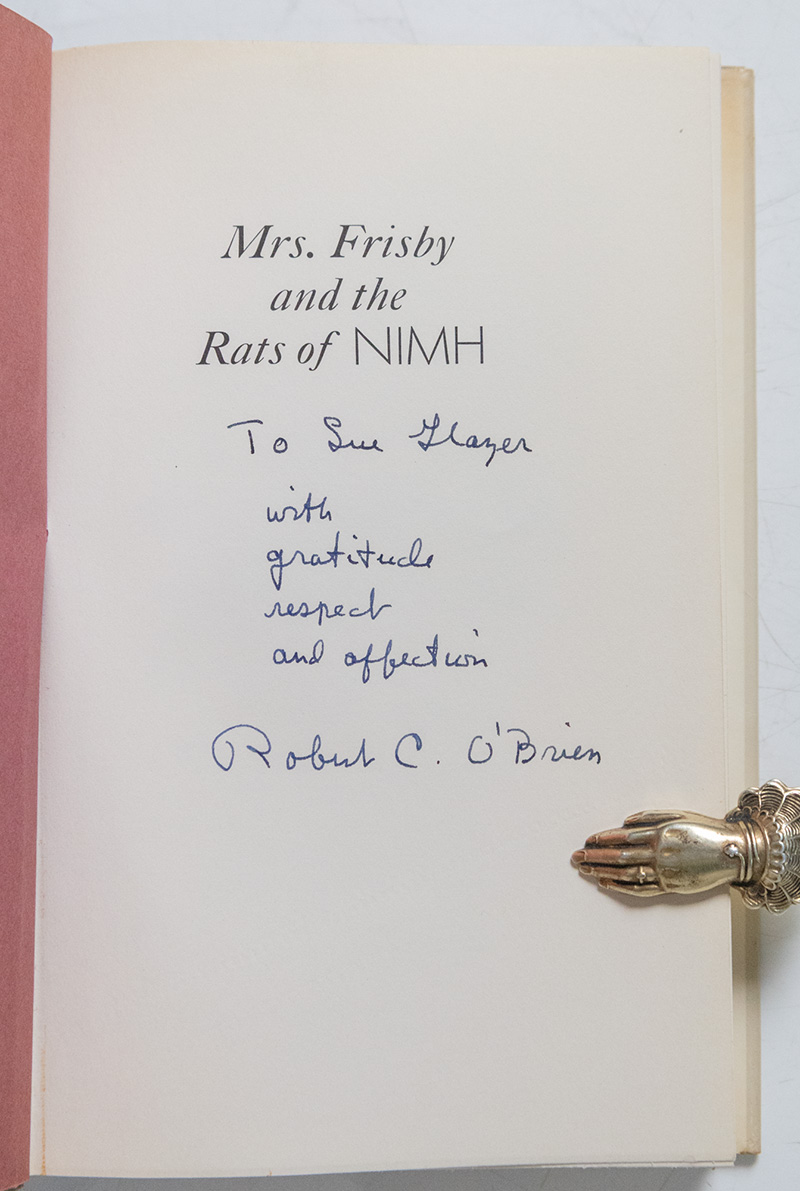 Mrs. Frisby
and the
Rats of NIMH
To Sue Glazer
with
gratitude
respect
and affection
Robert C. O'Brien